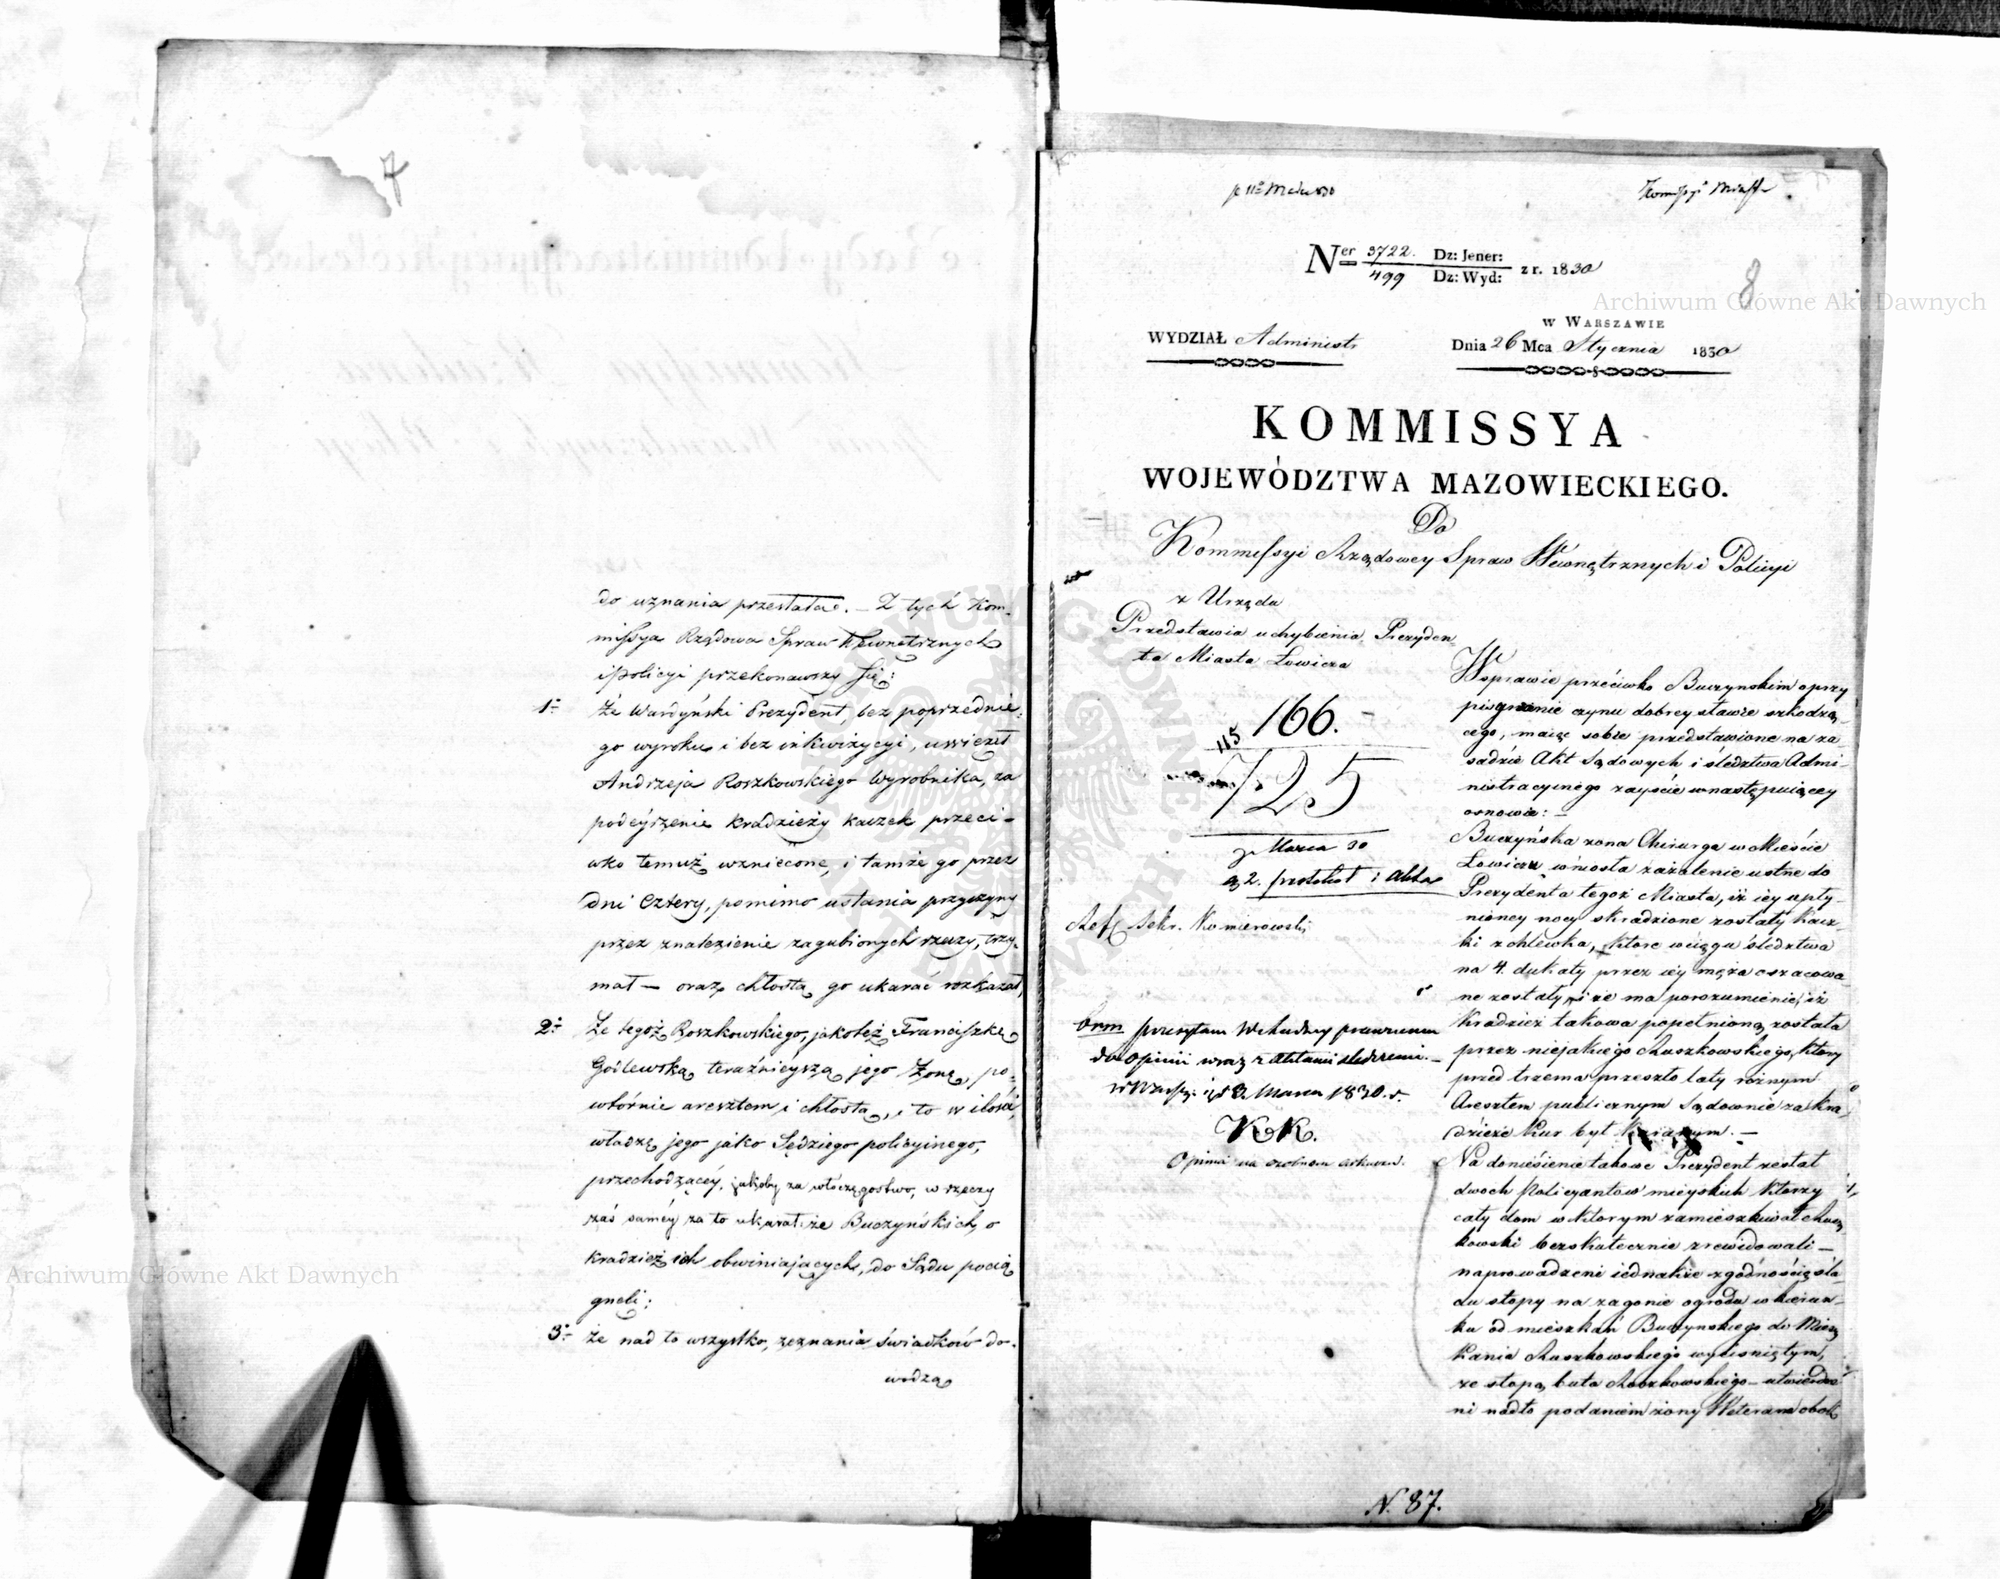 7
do uznania przesłałać. – Z tych Kom-
missya Rządowa Spraw Wewnętrznych
i Policyi przekonawszy się:
1- że Wardyński Prezydent, bez poprzednie-
go wyroku i bez inkwizycyi, uwięził
Andrzeja Roszkowskiego Wyrobnika, za
podeyrzenie kradzieży kaczek przeci-
wko temuż wzniecone, i tamże go przez
dni cztery, pomimo ustania przyczyny
przez znalezienie zagubionych rzeczy, trzy-
mał – oraz chłostą go ukarać rozkazał,
2- że tegoż Roszkowskiego, jakoteż Franciszkę
Godlewską teraźnieyszą jego Żonę, po-
wtórnie aresztem i chłostą, i to w ilości,
władzę jego jako Sędziego policyinego,
przechodzącey, jakoby za włóczęgostwo, w rzeczy
zaś saméy za to ukarał: że Buczyńskich, o
kradzież ich obwiniających, do Sądu pocią
gneli;
3- że nad to wszystko, zeznania świadków do-
wodzą
Kommissyi
8
Ner 3722. Dz: Jener:
499 Dz: Wyd: z r. 1830
w Warszawie
WYDZIAŁ Administr
Dnia 26 Mca Stycznia 1830
KOMMISSYA
WOJEWÓDZTWA MAZOWIECKIEGO.
Do
Kommissyi Rządowey Spraw Wewnętrznych i Policyi
z Urzędu
Przedstawia uchybienia Prezyden
ta Miasta Łowicza
115 166.
725
Marca 30
2. protokół i akta
Ref. Sekr. Komierowski
brm przesyłam Wchodzey
do opinii wraz z aktami śledczemi. –
8. Marca 1830. r.
KK.
Opinia na osobnem arkuszu.
W sprawie przeciwko Buczynskim o przy
pisywanie czynu dobrey sławie szkodzą-
cego, maiąc sobie przedstawione na za
sadzie Akt Sądowych i śledztwa Admi-
nistracyinego zayście w następuiącey
osnowie: –
Buczyńska żona Chirurga w Mieście
Łowiczu wniosła zażalenie ustne do
Prezydenta tegoż Miasta, iż iéy upły-
nioney nocy skradzione zostały Kacz-
ki z chlewka, które w ciągu śledztwa
na 4. dukaty przez iéy męża oszacowa
ne zostały, i że ma porozumienie, iż
Kradzież takowa popełnioną została
przez niejakiego Ruszkowskiego, który
przed trzema przeszło laty rożnym
Aresztem publicznym Sądownie za kra-
dzieże Kur był karanym. –
Na doniesienie takowe Prezydent zesłał
dwoch Policyantow mieyskich którzy
cały dom w którym zamieszkiwał Rusz
kowski bezskutecznie zrewidowali –
naprowadzeni iednakże zgodnością śla-
du stopy na zagonie ogrodu w kierun-
ku od mieszkań Buczynskiego do Miesz
kania Ruszkowskiego wyciśniętym,
ze stopą buta Roszkowskiego – utwierdze
ni nadto podaniem żony Weterana obok
N. 87.
Archiwum Główne Akt Dawnych
Archiwum Główne Akt Dawnych
ARCHIWUM GŁÓWNE AKT DAWNYCH